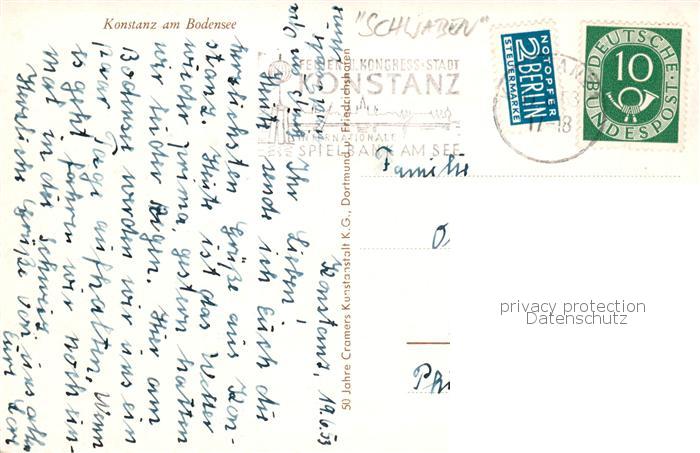 Konstanz am Bodensee
"SCHWABEN"
FERIEN- U. KONGRESS-STADT
KONSTANZ
INTERNATIONALE
SPIELBANK AM SEE
17-18
NOTOPFER
2 BERLIN
STEUERMARKE
DEUTSCHE
BUNDESPOST
10
Familie
Phi
privacy protection
Datenschutz
50 Jahre Cramers Kunstanstalt K.G., Dortmund u. Friedrichshafen
Konstanz, 19.6.53
Ihr Lieben!
Heute sende ich Euch die
herzlichsten Grüße aus Kon-
stanz. Heute ist das Wetter
wieder prima, gestern hatten
wir leider Regen. Hier am
Bodensee werden wir uns ein
paar Tage aufhalten, wenn
es geht fahren wir noch ein-
mal in die Schweiz.
Herzliche Grüße von uns allen
Eure